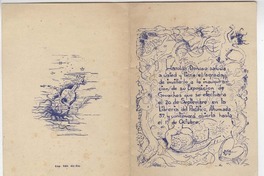 Hernán Orellana saluda
a usted y tiene el agrado
de invitarle a la inaugura-
ción de su Exposición de
Grabados que se efectuará
el 20 de Septiembre en la
Librería del Pacífico, Ahumada
57, y continuará abierta hasta
el 1º de Octubre.